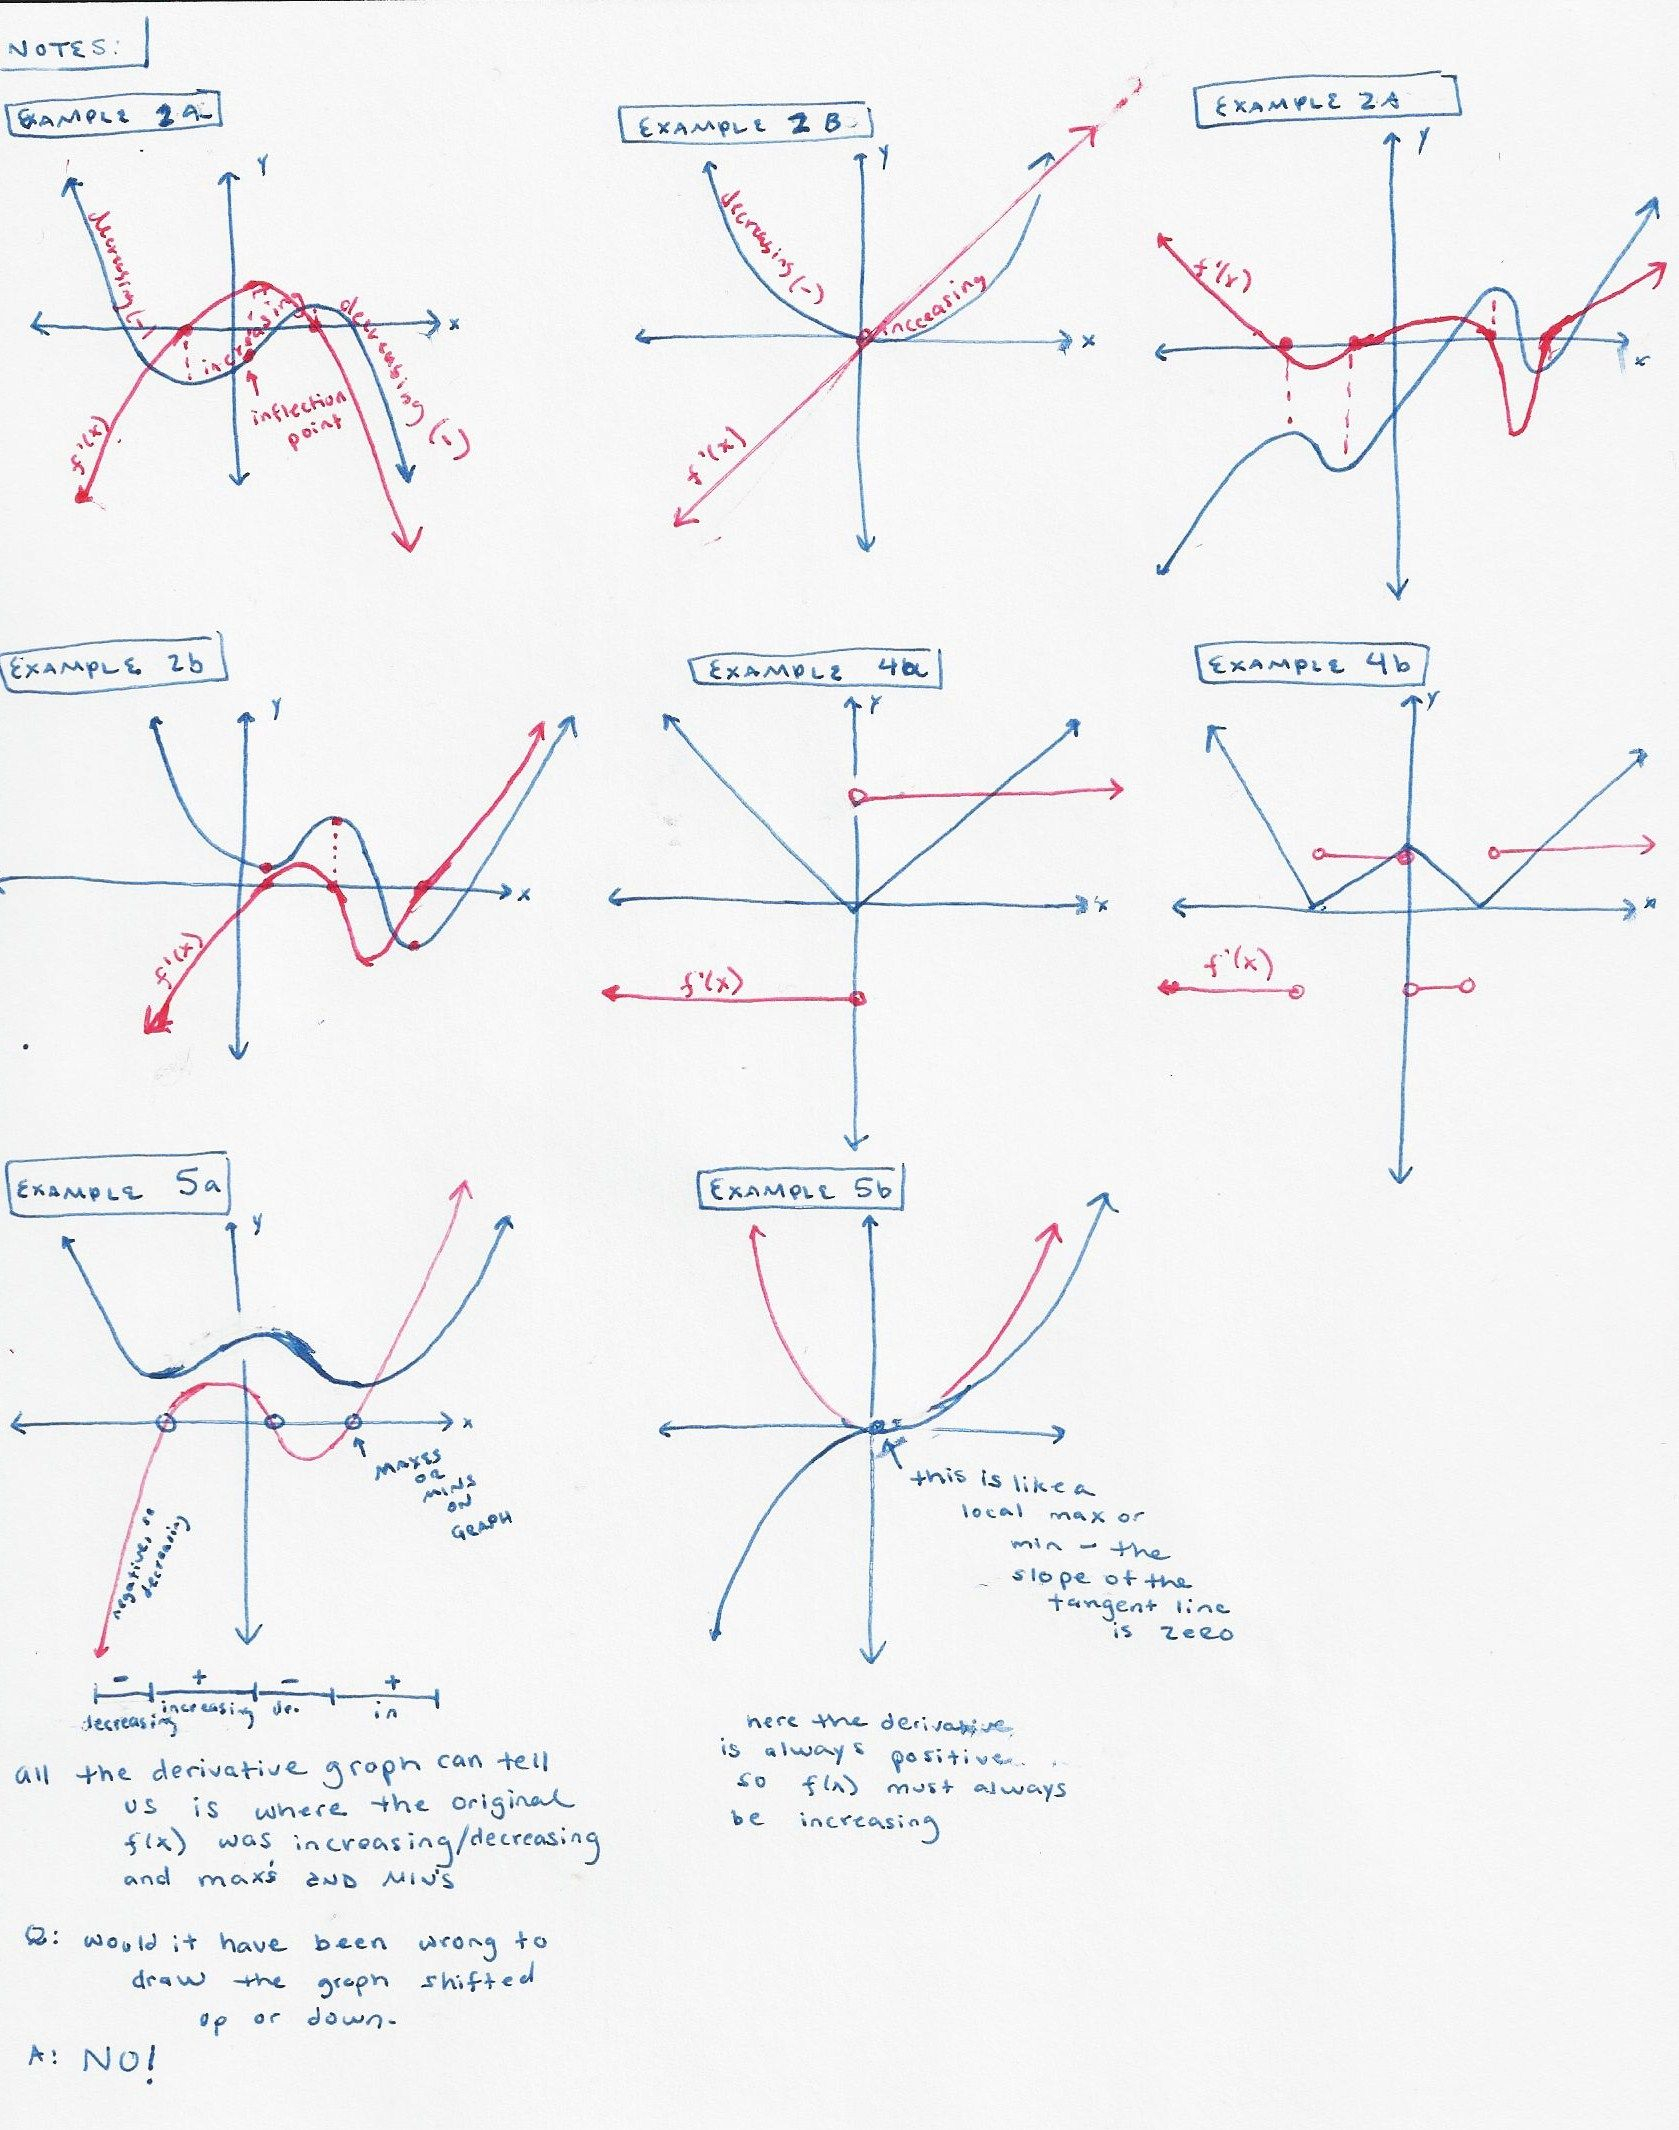 NOTES:
EXAMPLE 2A
y
decreasing (-)
increasing
decreasing (-)
x
inflection
point
f'(x)
EXAMPLE 2B
y
decreasing (-)
increasing
x
f'(x)
EXAMPLE 2A
y
f'(x)
x
EXAMPLE 2b
y
x
f'(x)
EXAMPLE 4a
y
x
f'(x)
EXAMPLE 4b
y
x
f'(x)
EXAMPLE 5a
y
x
MAXES
OR
MINS
ON
GRAPH
negative, so
decreasing
- + - +
decreasing increasing de. in
all the derivative graph can tell
us is where the original
f(x) was increasing/decreasing
and max's AND MIN'S
Q: would it have been wrong to
draw the graph shifted
up or down.
A: NO!
EXAMPLE 5b
this is like a
local max or
min - the
slope of the
tangent line
is zero
here the derivative
is always positive
so f(x) must always
be increasing